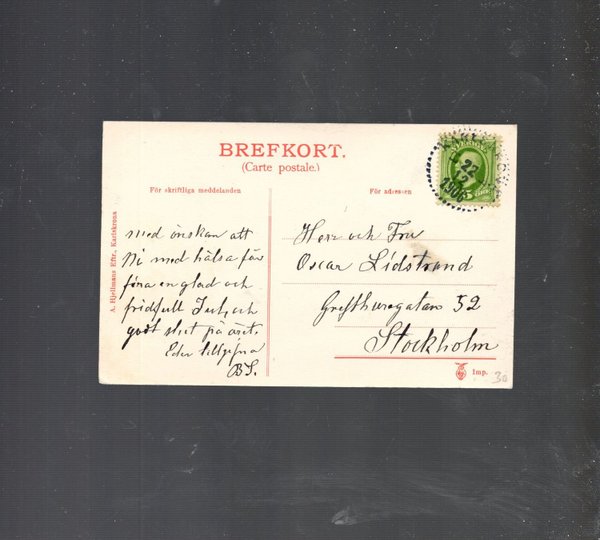 BREFKORT.
(Carte postale.)
För skriftliga meddelanden
För adressen
A. Hjellmans Eftr., Karlskrona
med önskan att
Ni med hälsa får
fira en glad och
fridfull Jul, och
godt slut på året.
Eder tillgifna
BS.
Herr och Fru
Oscar Lidstrand
Grefthuregatan 52
Stockholm
SVERIGE
5 ÖRE
22
12
1906
Imp.
30